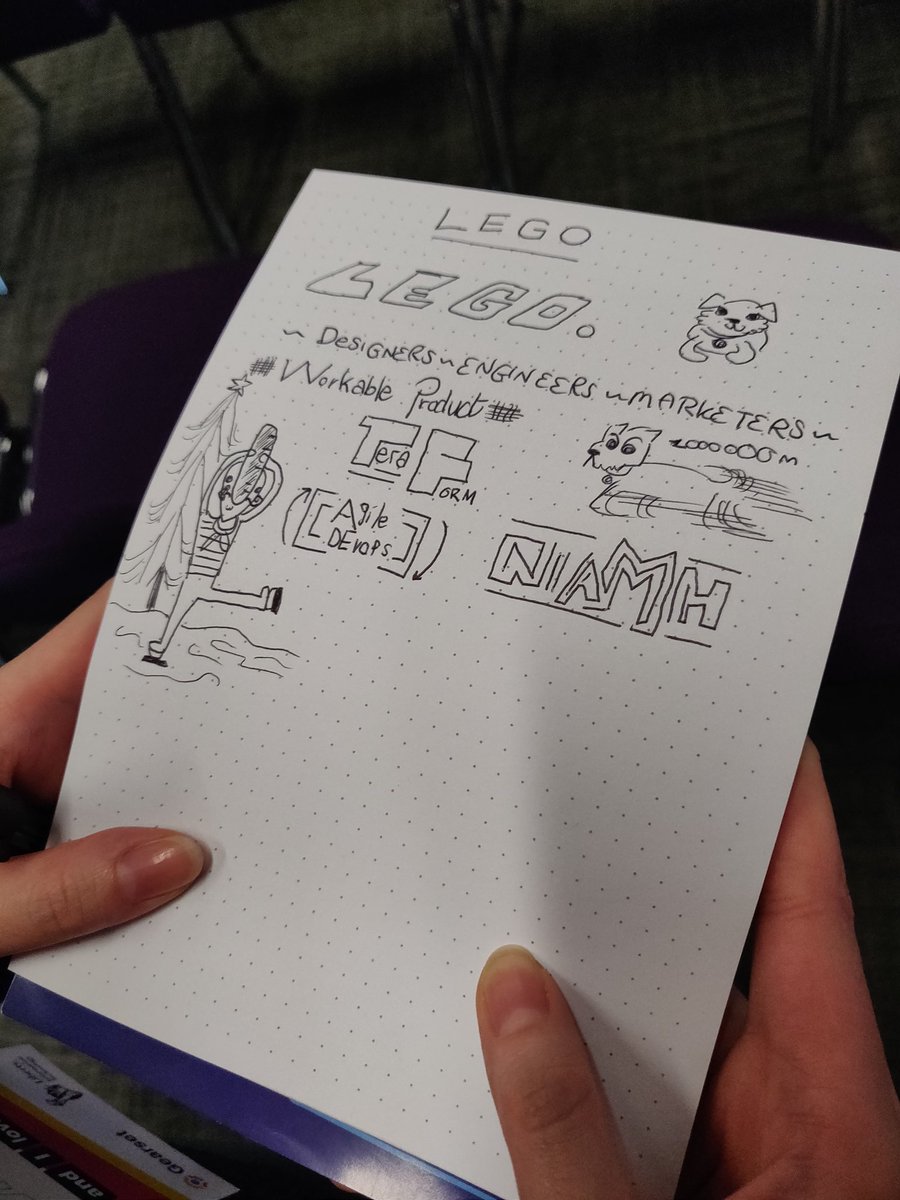 LEGO
LEGO.
~ DESIGNERS ~ ENGINEERS ~ MARKETERS ~
# Workable Product #
Tera FORM
1000000m
[Agile
DEvops]
NIAMH
Gearset
and I lov